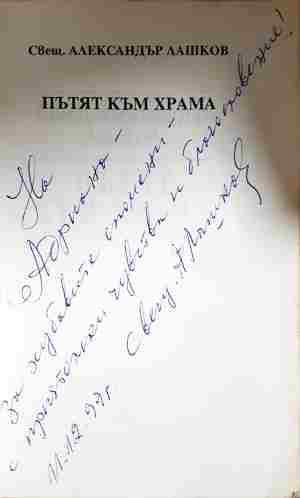 Свещ. АЛЕКСАНДЪР ЛАШКОВ
ПЪТЯТ КЪМ ХРАМА
На
Адриана -
за хубавите спомени -
с приятелски чувства и благословение!
Свещ. А Лашков
11.12.97г